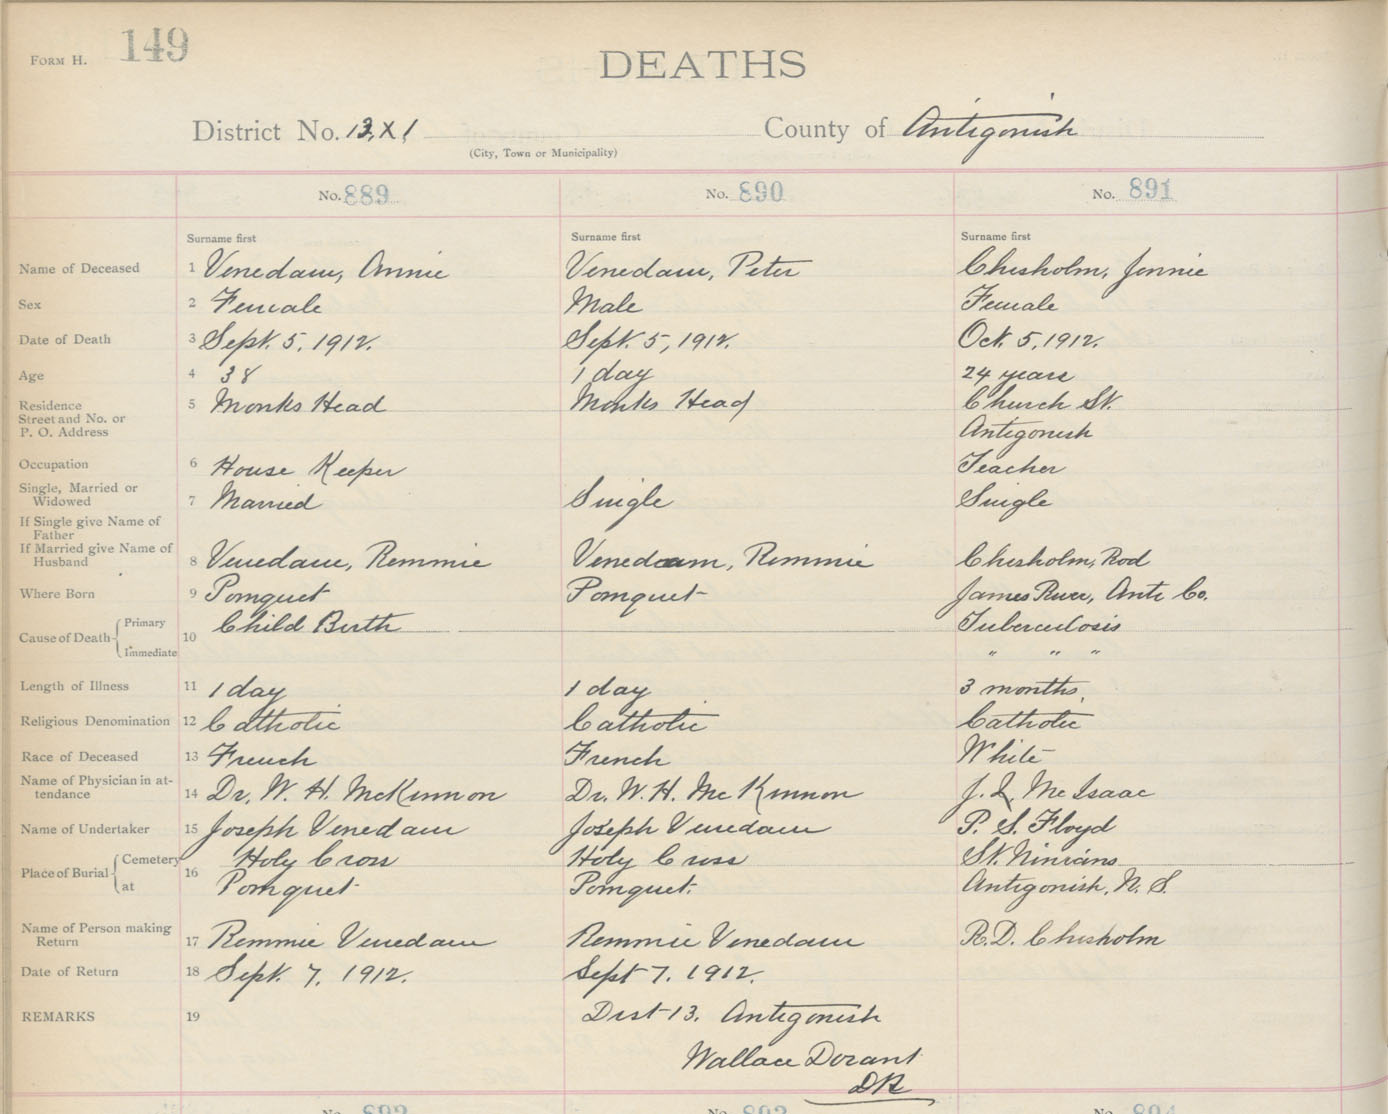 FORM H. 149
DEATHS
District No. 13, X 1 County of Antigonish
(City, Town or Municipality)
No. 889 No. 890 No. 891
Surname first Surname first Surname first
Name of Deceased 1 Venedam, Annie Venedam, Peter Chisholm, Jennie
Sex 2 Female Male Female
Date of Death 3 Sept. 5, 1912. Sept. 5, 1912. Oct. 5, 1912.
Age 4 38 1 day 24 years
Residence 5 Monks Head Monks Head Church St.
Street and No. or
P. O. Address Antigonish
Occupation 6 House Keeper Teacher
Single, Married or
Widowed 7 Married Single Single
If Single give Name of
Father
If Married give Name of
Husband 8 Venedam, Remmie Venedam, Remmie Chisholm, Rod
Where Born 9 Pomquet Pomquet James River, Anti Co.
Cause of Death Primary Child Birth Tuberculosis
10 Immediate " " "
Length of Illness 11 1 day 1 day 3 months,
Religious Denomination 12 Catholic Catholic Catholic
Race of Deceased 13 French French White
Name of Physician in at-
tendance 14 Dr. W. H. McKinnon Dr. W. H. McKinnon J. J. McIsaac
Name of Undertaker 15 Joseph Venedam Joseph Venedam P. S. Floyd
Place of Burial Cemetery Holy Cross Holy Cross St. Ninians
16 at Pomquet Pomquet. Antigonish, N. S.
Name of Person making
Return 17 Remmie Venedam Remmie Venedam R. D. Chisholm
Date of Return 18 Sept. 7, 1912. Sept 7, 1912.
REMARKS 19 Dist 13. Antigonish
Wallace Dorant
DR
No. 892 No. 893 No. 894